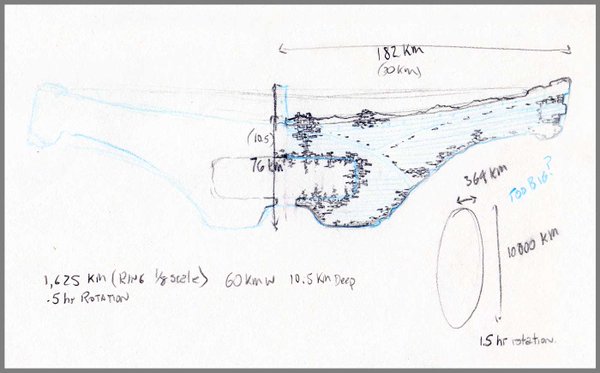 182 KM
(30 KM)
(10.5)
76 KM
364 KM
TOO BIG?
10000 KM
1,625 KM (RING 1/8 SCALE) 60 KM W 10.5 KM DEEP
.5 hr ROTATION
1.5 hr rotation.